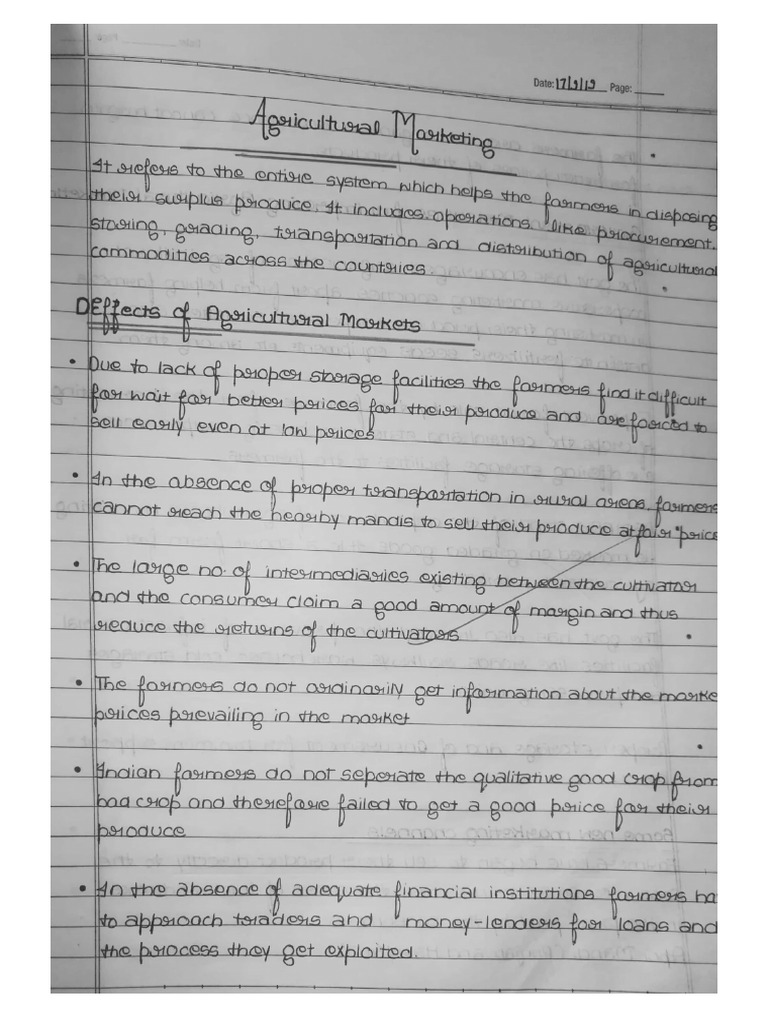 Date: 17/9/19 Page:
Agricultural Marketing
It refers to the entire system which helps the farmers in disposing
their surplus produce. It includes operations like procurement.
storing, grading, transportation and distribution of agricultural
commodities across the countries.
DEffects of Agricultural Markets
• Due to lack of proper storage facilities the farmers find it difficult
for wait for better prices for their produce and are forced to
sell early even at low prices
• In the absence of proper transportation in rural areas, farmers
cannot reach the nearby mandis to sell their produce at fair price
• The large no. of intermediaries existing between the cultivator
and the consumer claim a good amount of margin and thus
reduce the returns of the cultivators
• The farmers do not ordinarily get information about the marke
prices prevailing in the market
• Indian farmers do not seperate the qualitative good crop from
bad crop and therefore failed to get a good price for their
produce
• In the absence of adequate financial institutions farmers ha
to approach traders and money-lenders for loans and
the process they get exploited.